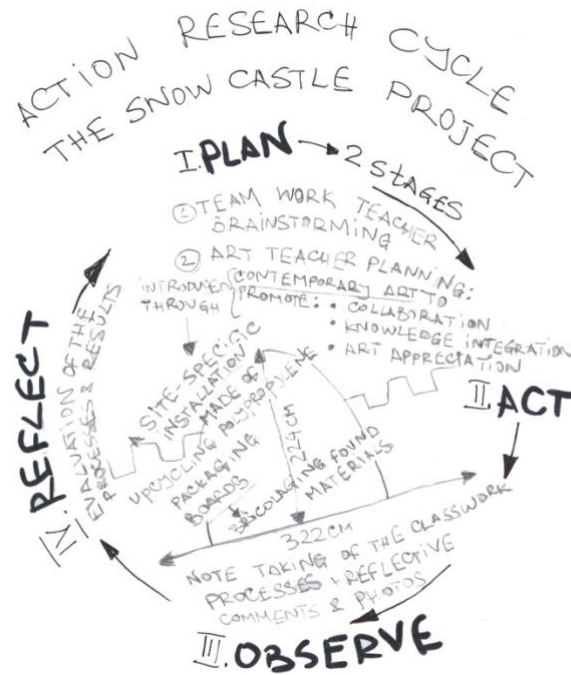 ACTION RESEARCH CYCLE
THE SNOW CASTLE PROJECT
I. PLAN → 2 STAGES
① TEAM WORK TEACHER
BRAINSTORMING
② ART TEACHER PLANNING:
INTRODUCED
THROUGH
CONTEMPORARY ART TO
PROMOTE: • COLLABORATION
• KNOWLEDGE INTEGRATION
• ART APPRECIATION
SITE-SPECIFIC
INSTALLATION
MADE OF
UPCYCLING POLYPROPYLENE
PACKAGING
BOARDS
BRICOLAGING FOUND
MATERIALS
224CM
322CM
II ACT
NOTE TAKING OF THE CLASSWORK
PROCESSES + REFLECTIVE
COMMENTS & PHOTOS
III. OBSERVE
IV. REFLECT
EVALUATION OF THE
PROCESSES & RESULTS